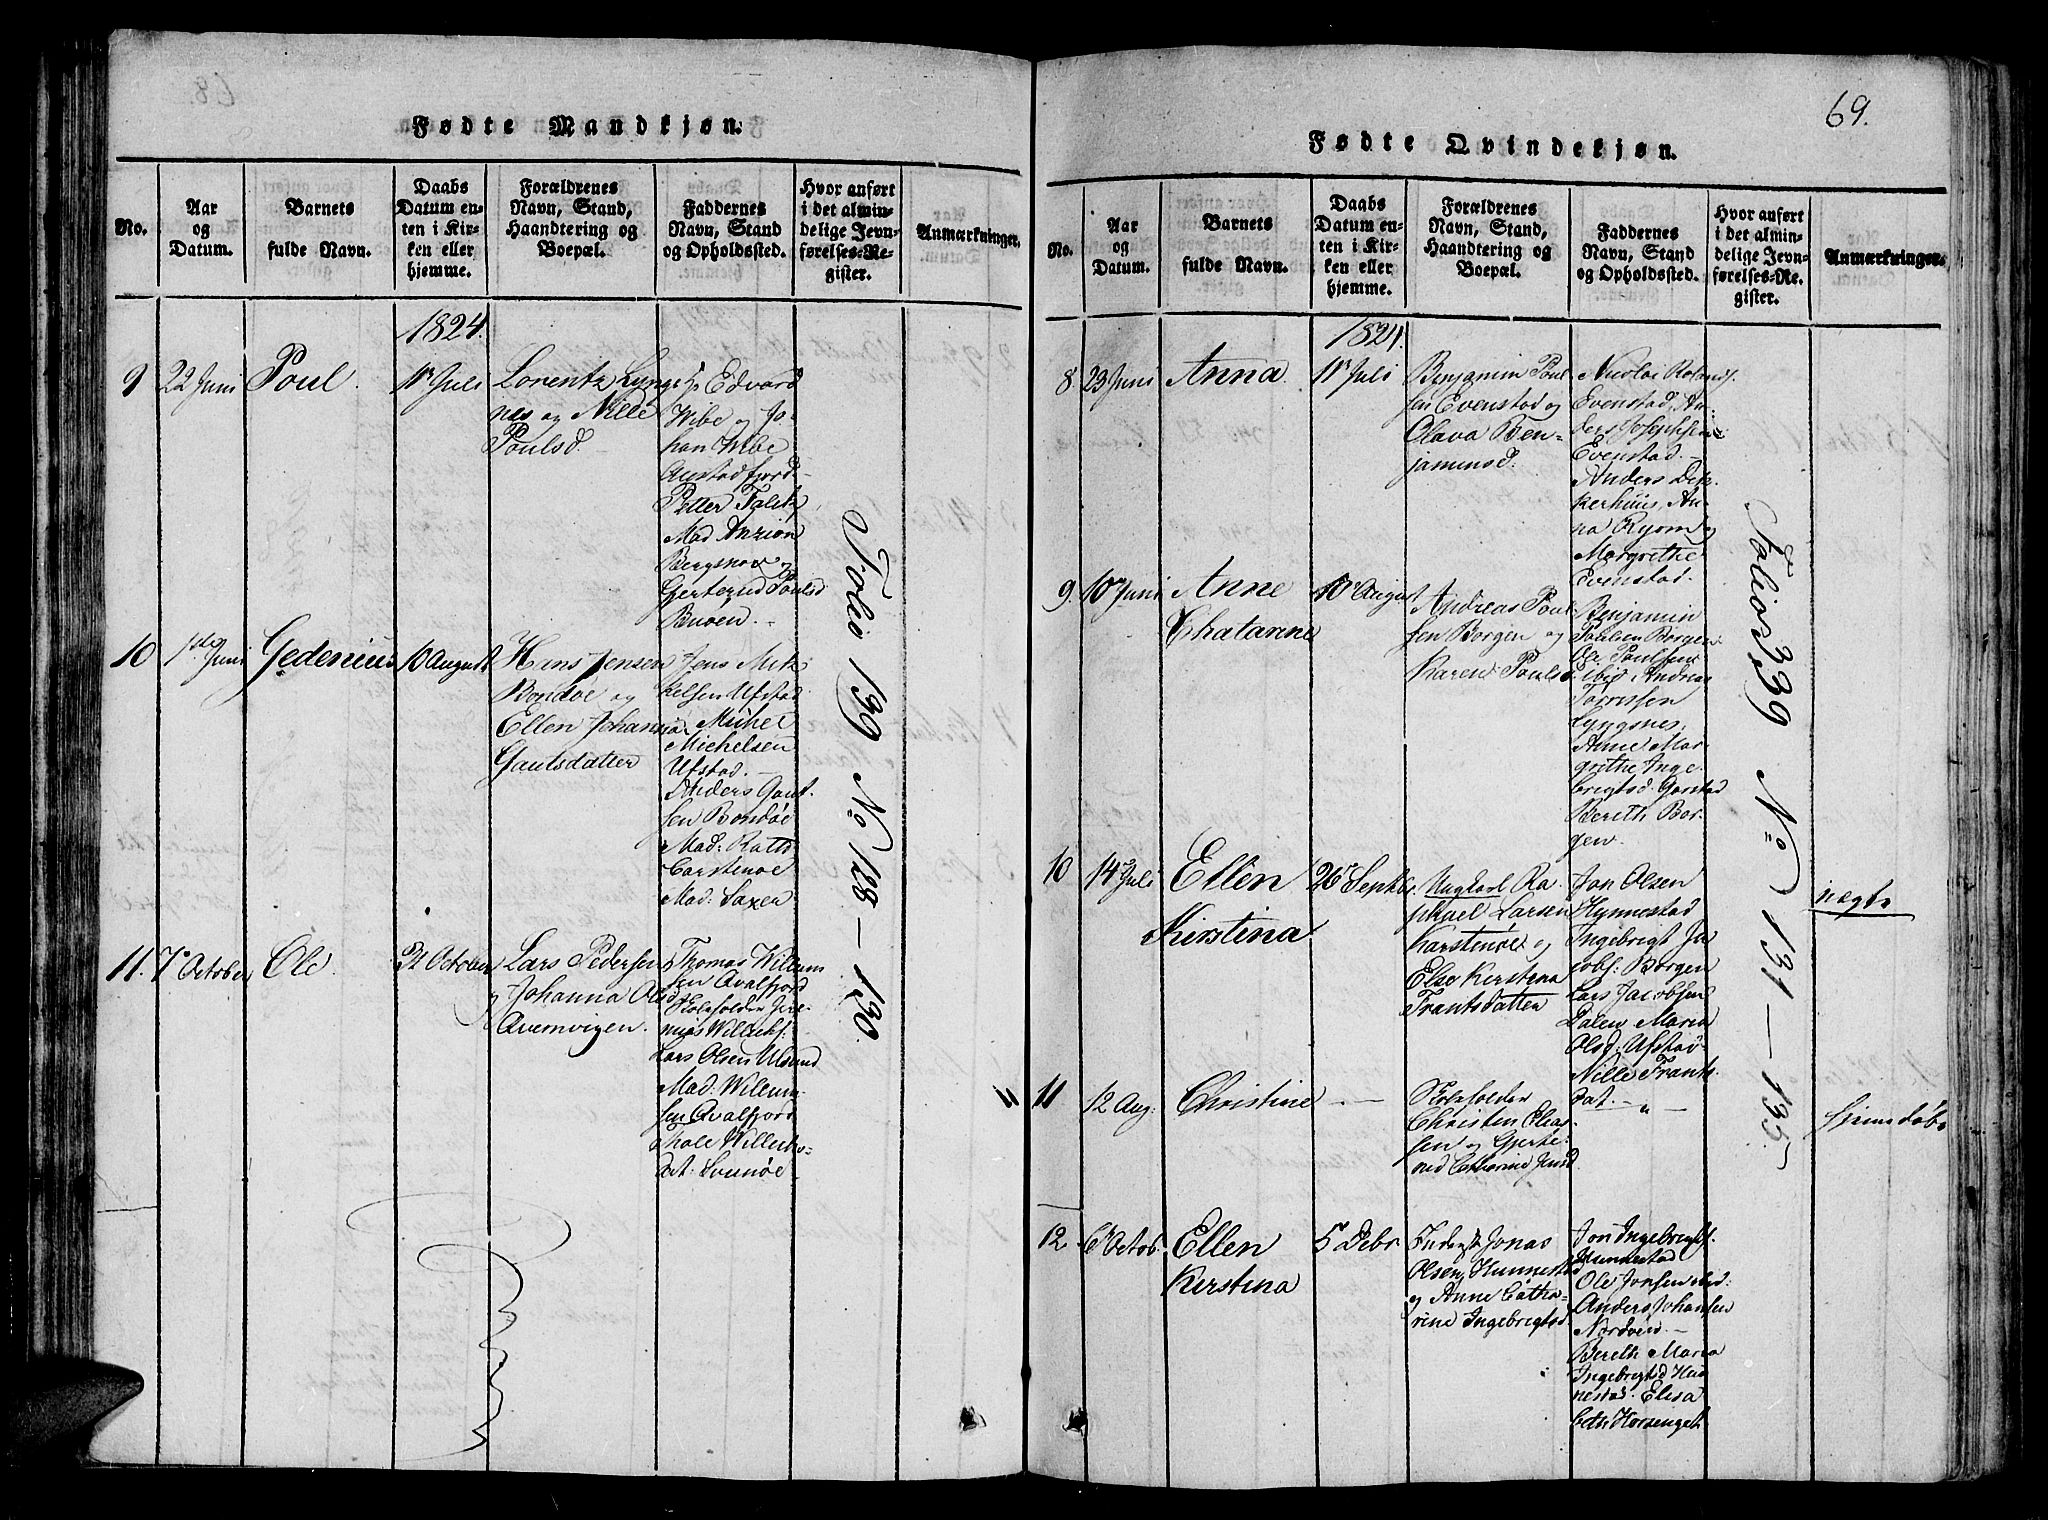 Fødte Mandkjøn.
No.
Aar
og
Datum.
Barnets
fulde Navn.
Daabs
Datum en-
ten i Kir-
ken eller
hjemme.
Forældrenes
Navn, Stand,
Haandtering og
Boepæl.
Faddernes
Navn, Stand
og Opholdssted.
Hvor anført
i det almin-
delige Jevn-
førelses-Re-
gister.
Anmærkninger.
1824.
9
22 Juni
Poul.
11 Juli
Lorentz Lyngs
nes og Nille
Poulsd.
Edvard
Wibe og Jo-
han Wibe
Austadfjord
Petter Falck
Mad Anzion
Bergsnov og
Gjertrud Poulsd
Buöen.
10
1ste Juni
Gedenius
10 August
Hans Jensen
Bondöe og
Ellen Johanna
Gautsdatter
Jens Mik
kelsen Ufstad
Michel
Michelsen
Ufstad.
Anders Gaut
sen Bondöe
Mad: Ratts
Carstenöe
Mad: Saxen
11.
7de October
Ole
31 October
Lars Pedersen
og Johanna Olsd
Qvernvigen.
Thomas Willum
sen Qvalfjord
Skoleholder Jere
mias Willochs.
Lars Olsen Ulsund
Mad: Willum-
sen Qvalfjord
Thale Willochs-
dat: Svenöe
Folio 139 No 128 — 130.
69.
Fødte Qvindekjøn.
No.
Aar
og
Datum.
Barnets
fulde Navn.
Daabs
Datum en-
ten i Kir-
ken eller
hjemme.
Forældrenes
Navn, Stand,
Haandtering og
Boepæl.
Faddernes
Navn, Stand
og Opholdssted.
Hvor anført
i det almin-
delige Jevn-
førelses-Re-
gister.
Anmærkninger.
1824.
8
23 Juni
Anna
11 Juli
Benjamin Poul
sen Evenstad og
Olava Ben-
jaminsd:
Nicolai Rolands.
Evenstad, An-
ders Josephsen
Evenstad.
Anders Dyp
kerhuus, An-
na Ryom og
Margrethe
Evenstad.
9.
10 Juni
Anne
Chatarine
10 August
Andreas Poul
sen Borgen og
Karen Poulsd.
Benjamin
Poulsen Borgen
Ole Poulsen
ibid Andreas
Torrissen
Lyngsnes,
Anne Mar-
grethe Inge
brigtsd. Garstad
Bereth Bor-
gen.
10
14 Juli
Ellen
Kirstina
26 Septbr.
Ungkarl Ra
phael Larsen
Karstenöe og
Else Kerstina
Frantsdatter
Jon Olsen
Hynnestad
Ingebrigt Ja
cobs: Borgen
Lars Jacobsen
Dalen Maria
Olsd: Ufstad
Nille Frants
dat.
uægte
11
12 Aug:
Christine
Skoleholder
Christen Elias
sen og Gjerte-
rud Catharine Jensd
hjemdöbt
12
6 Octob.
Ellen
Kerstina
5 Decbr
Inderst Jonas
Olsen Hunnestad
og Anne Catha-
rine Ingebrigtsd.
Jon Ingebrigts.
Hunnestad
Ole Jonsen ibid:
Anders Johansen
Nordöen
Bereth Maria
Ingebrigtsd Hun
nestad. Elisa
beth Horsenget
Folio 139 No 131 — 135